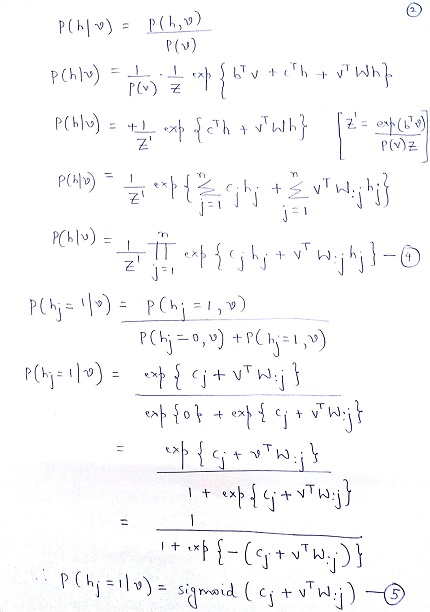 ②
P(h|v) = P(h,v) / P(v)
P(h|v) = 1/P(v) · 1/Z exp { bᵀv + cᵀh + vᵀWh }
P(h|v) = 1/Z' exp { cᵀh + vᵀWh } [ Z' = exp(bᵀv) / P(v)Z ]
P(h|v) = 1/Z' exp { Σ_{j=1}^{n} cⱼhⱼ + Σ_{j=1}^{n} vᵀW:ⱼhⱼ }
P(h|v) = 1/Z' Π_{j=1}^{n} exp { cⱼhⱼ + vᵀW:ⱼhⱼ } – ④
P(hⱼ=1|v) = P(hⱼ=1,v) / P(hⱼ=0,v) + P(hⱼ=1,v)
P(hⱼ=1|v) = exp { cⱼ + vᵀW:ⱼ } / exp {0} + exp { cⱼ + vᵀW:ⱼ }
= exp { cⱼ + vᵀW:ⱼ } / 1 + exp { cⱼ + vᵀW:ⱼ }
= 1 / 1 + exp { -(cⱼ + vᵀW:ⱼ) }
∴ P(hⱼ=1|v) = sigmoid ( cⱼ + vᵀW:ⱼ ) – ⑤